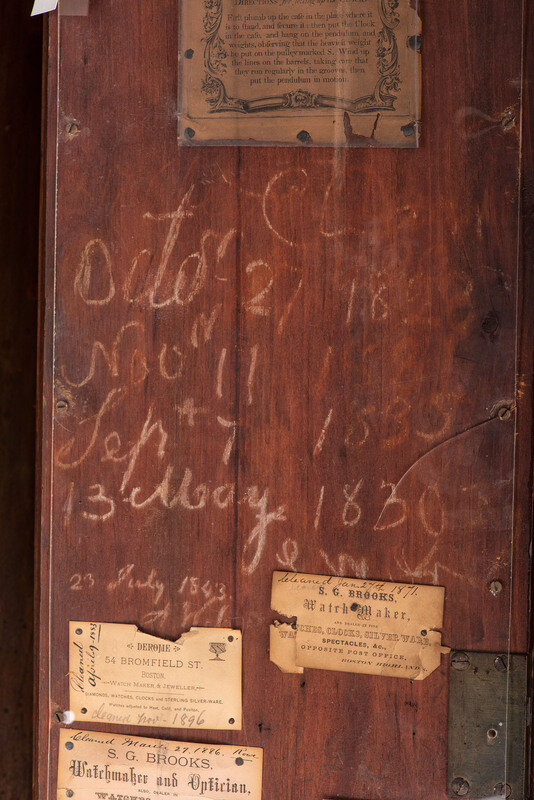 First, plumb up the case in the place where it
is to stand, and secure it; then put the Clock
in the case, and hang on the pendulum and
weights, observing that the heaviest weight
be put on the pulley marked S. Wind up
the lines on the barrels, taking care that
they run regularly in the grooves, then
put the pendulum in motion.
Octor 21 18
Nov 11
Sept 7 1835
13 May 1830
23 July 1843
Cleaned Jan 27th 1871.
S. G. BROOKS,
Watch Maker,
AND DEALER IN FINE
WATCHES, CLOCKS, SILVER WARE,
SPECTACLES, &c.,
OPPOSITE POST OFFICE,
BOSTON HIGHLANDS
Cleaned
DEROJIE
54 BROMFIELD ST.
BOSTON.
WATCH MAKER & JEWELLER,
DIAMONDS, WATCHES, CLOCKS and STERLING SILVER-WARE.
Watches adjusted to Heat, Cold, and Position.
Cleaned Nov - 1896
Cleaned March 27. 1886.
S. G. BROOKS,
Watchmaker and Optician,
ALSO, DEALER IN
WATCHES